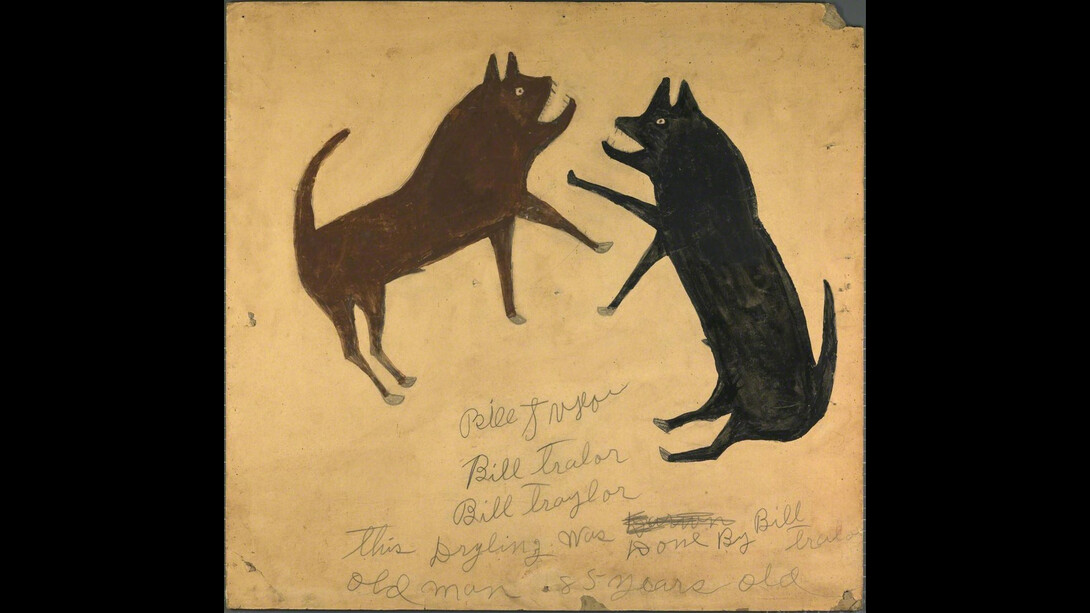 Bill
Bill Tralor
Bill Traylor
this Dryling was Done By Bill tralor
old man .85 years old